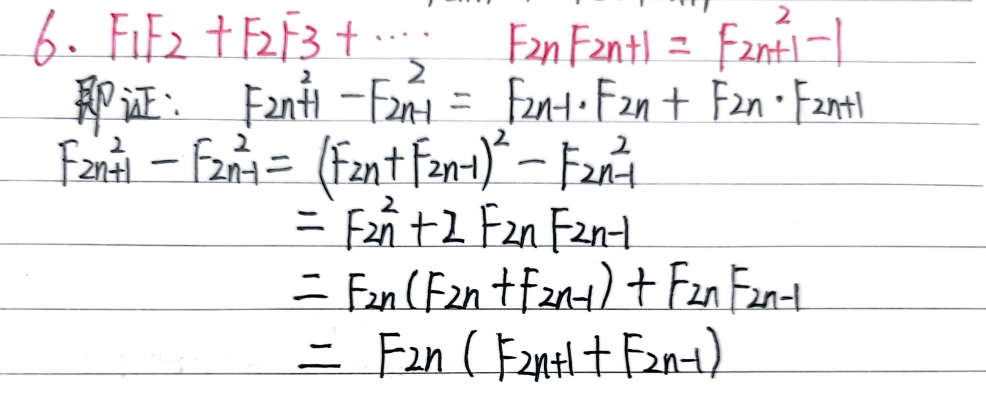 6. F₁F₂ + F₂F₃ + ···· F₂ₙF₂ₙ₊₁ = F₂ₙ₊₁² - 1
即证: F₂ₙ₊₁² - F₂ₙ₋₁² = F₂ₙ₋₁·F₂ₙ + F₂ₙ·F₂ₙ₊₁
F₂ₙ₊₁² - F₂ₙ₋₁² = (F₂ₙ + F₂ₙ₋₁)² - F₂ₙ₋₁²
= F₂ₙ² + 2 F₂ₙ F₂ₙ₋₁
= F₂ₙ (F₂ₙ + F₂ₙ₋₁) + F₂ₙ F₂ₙ₋₁
= F₂ₙ ( F₂ₙ₊₁ + F₂ₙ₋₁)